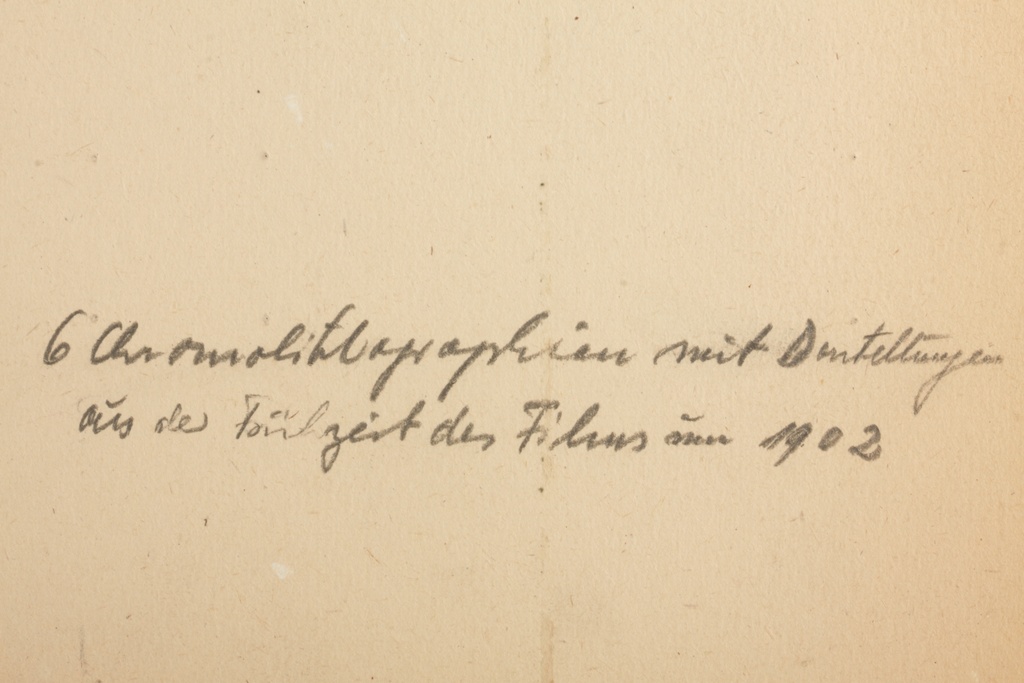 6 Chromolithographien mit Darstellungen
aus der Frühzeit des Films um 1902